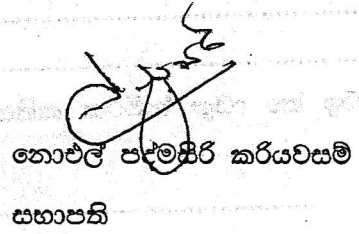 නොඑල් පද්මසිරි කරියවසම්
සභාපති